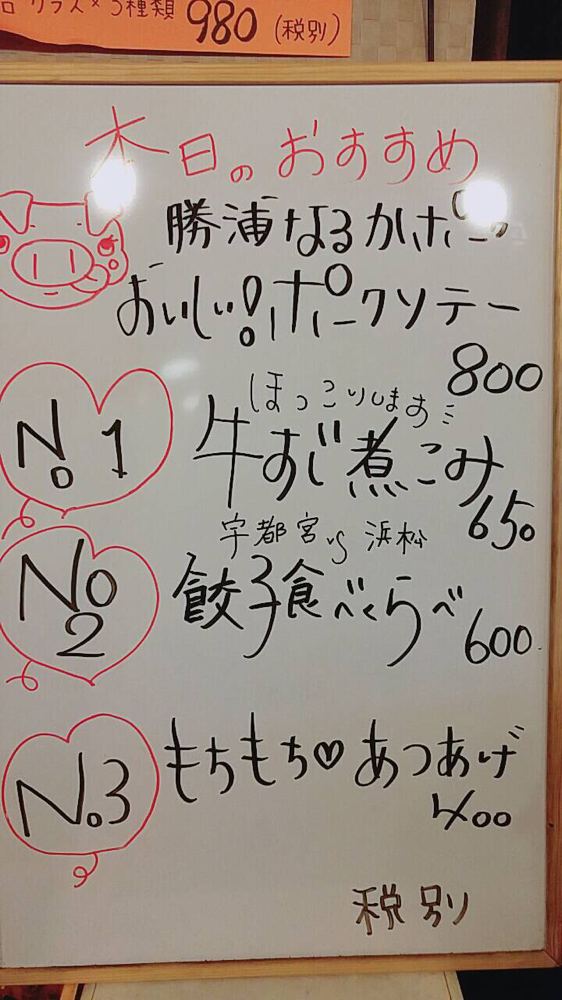 グラス×3種類 980 (税別)
本日のおすすめ
勝浦なるかポーク
おいしい!ポークソテー
800
ほっこりします
No 1 牛すじ煮こみ
650
宇都宮vs浜松
No 2 餃子食べくらべ
600
No.3 もちもち♡あつあげ
400
税別